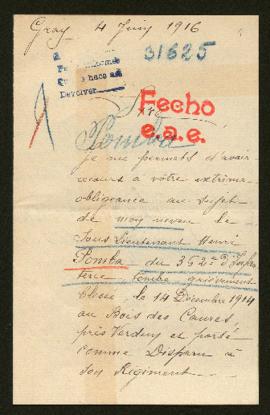 Gray 4 Juin 1916
31625
Devolver
Fecho
e.a.e.
Sire
Pomba
je me permets d'avoir
recours à votre extrême
obligeance au sujet
de mon neveu le
Sous Lieutenant Henri
Pomba du 362e d'Infan
terie, tombé grièvement
blessé, le 14 Décembre 1914
au Bois des Caures,
près Verdun et porté
comme Disparu à
son Régiment